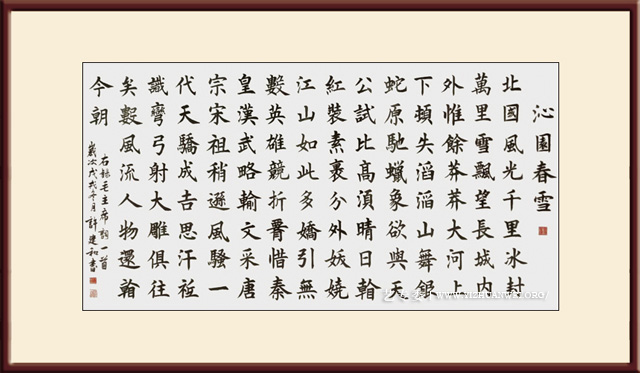 沁園春雪
北國風光千里冰封
萬里雪飄望長城内
外惟餘莽莽大河上
下頓失滔滔山舞銀
蛇原馳蠟象欲與天
公試比高湏晴日看
紅裝素裹分外妖嬈
江山如此多嬌引無
數英雄競折腰惜秦
皇漢武略輸文采唐
宗宋祖稍遜風騷一
代天驕成吉思汗祗
識彎弓射大雕俱往
矣數風流人物還看
今朝
右錄毛主席詞一首
歲次戊戌冬月許建和書